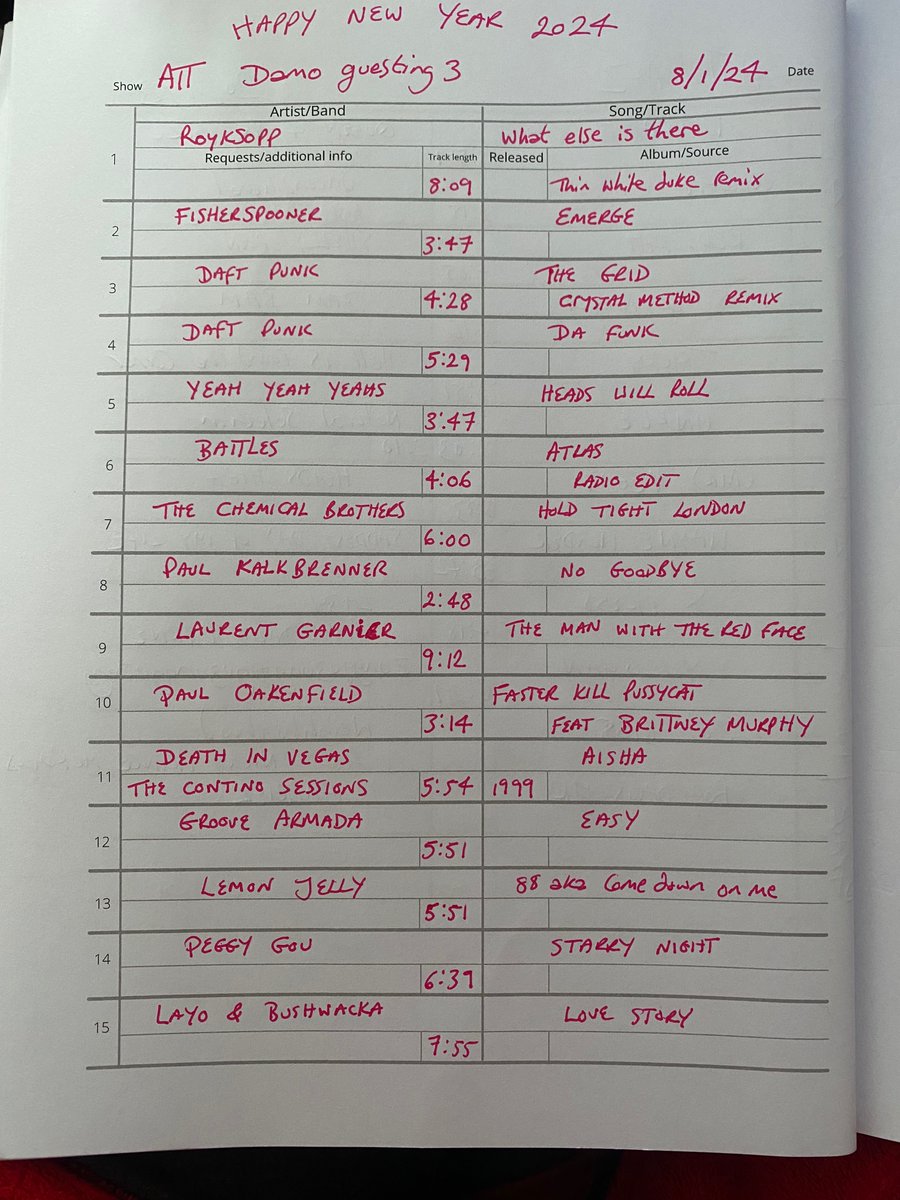 HAPPY NEW YEAR 2024
Show ATT Damo guesting 3 8/1/24 Date
Artist/Band Song/Track
RoyKSoPP What else is there
1 Requests/additional info Track length Released Album/Source
8:09 Thin white duke remix
FISHERSPOONER EMERGE
2 3:47
DAFT PUNK THE GRID
3 4:28 CRYSTAL METHOD REMIX
DAFT PUNK DA FUNK
4 5:29
YEAH YEAH YEAHS HEADS WILL ROLL
5 3:47
BATTLES ATLAS
6 4:06 RADIO EDIT
THE CHEMICAL BROTHERS HOLD TIGHT LONDON
7 6:00
PAUL KALKBRENNER NO GOODBYE
8 2:48
LAURENT GARNIER THE MAN WITH THE RED FACE
9 9:12
PAUL OAKENFIELD FASTER KILL PUSSYCAT
10 3:14 FEAT BRITTNEY MURPHY
DEATH IN VEGAS AISHA
11 THE CONTINO SESSIONS 5:54 1999
GROOVE ARMADA EASY
12 5:51
LEMON JELLY 88 aka Come down on me
13 5:51
PEGGY GOU STARRY NIGHT
14 6:39
LAYO & BUSHWACKA LOVE STORY
15 7:55